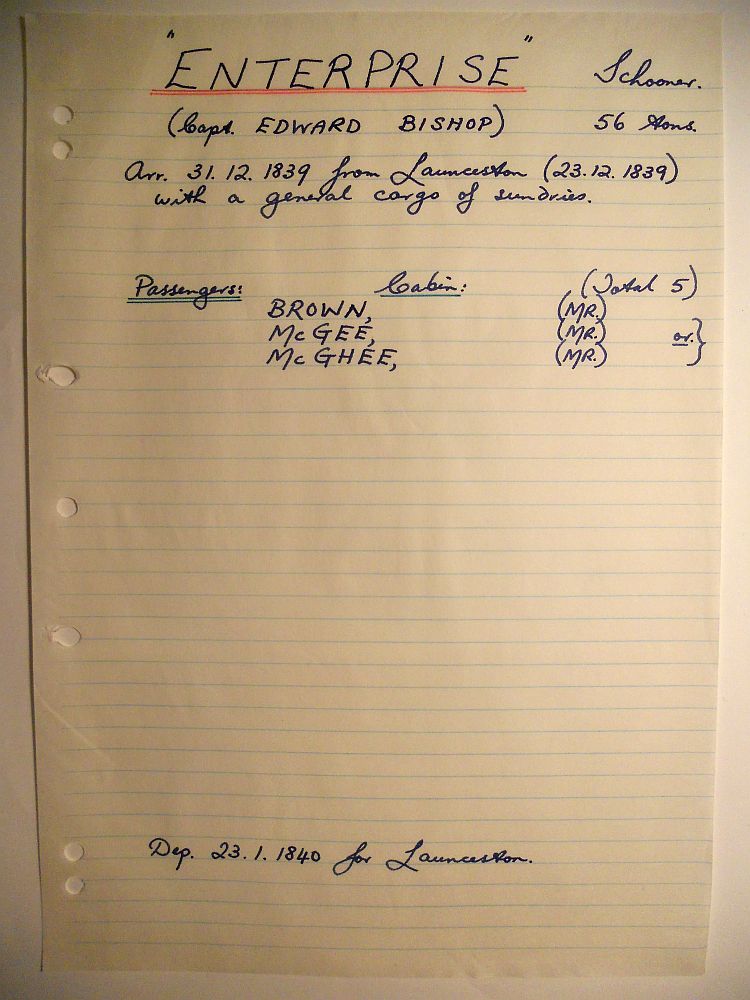 "ENTERPRISE" Schooner.
(Capt. EDWARD BISHOP) 56 tons.
Arr. 31.12.1839 from Launceston (23.12.1839)
with a general cargo of sundries.
Passengers: Cabin: (Total 5)
BROWN, (MR.)
McGEE, (MR.) or.}
McGHEE, (MR.)
Dep. 23.1.1840 for Launceston.